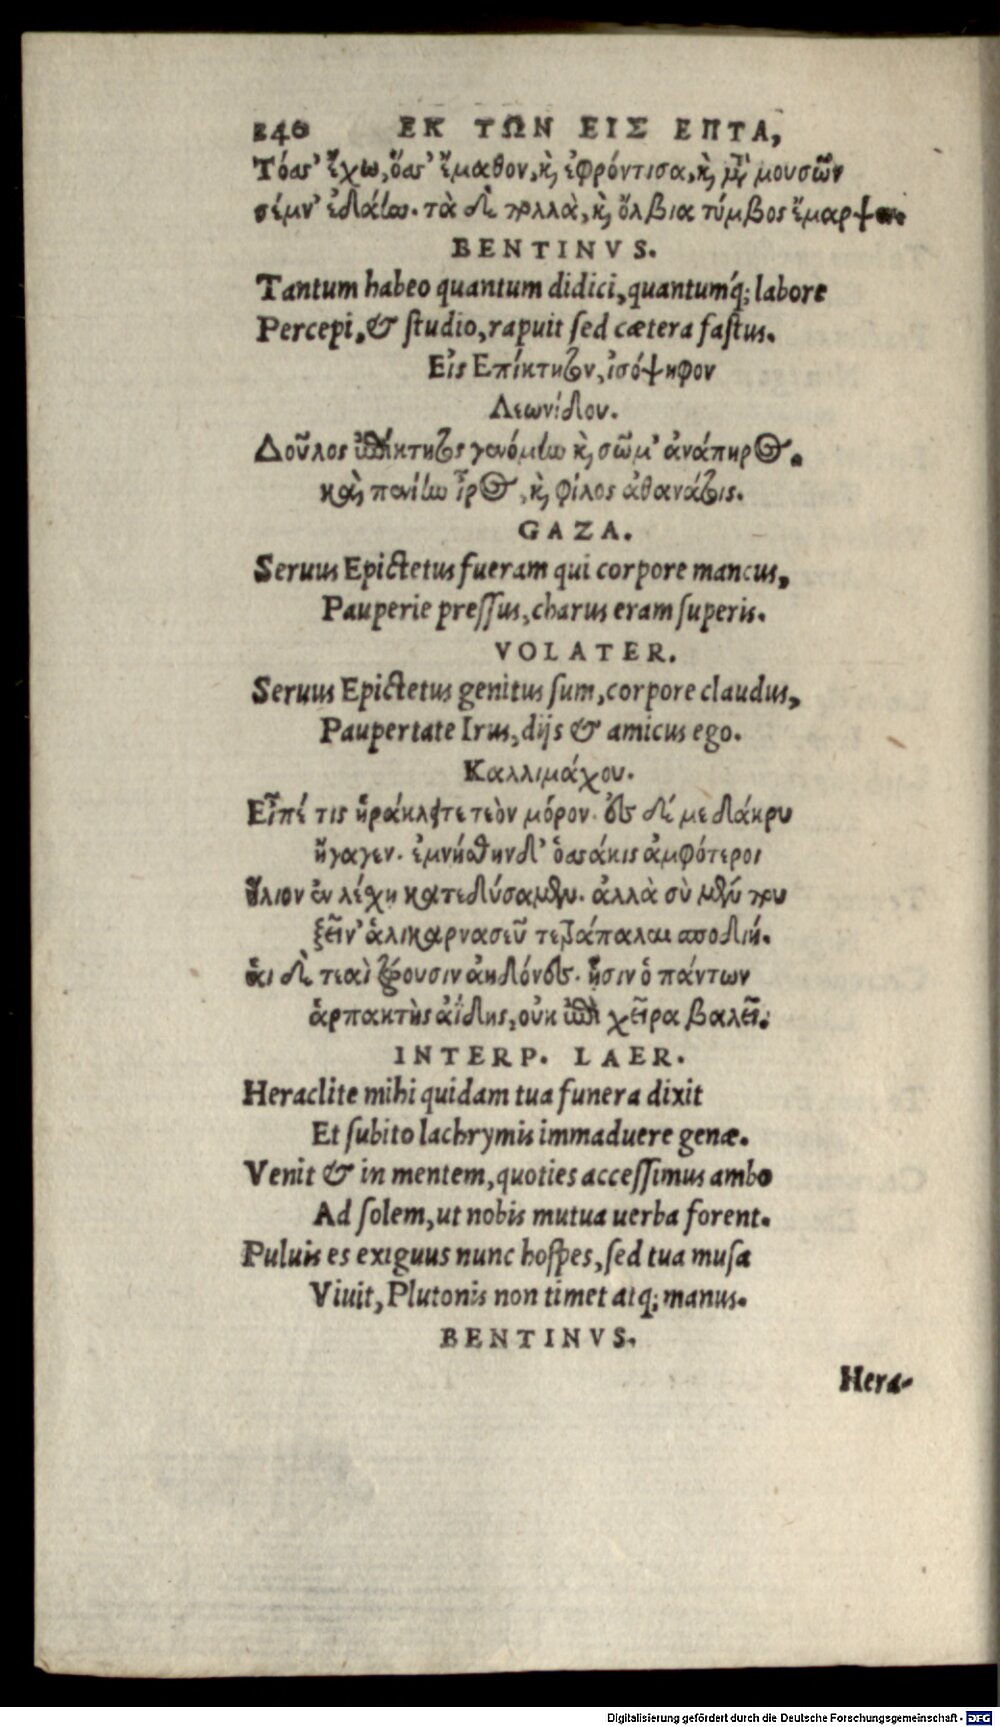 240 ΕΚ ΤΩΝ ΕΙΣ ΕΠΤΑ,
Τόσσ' ἔχω, ὅσσ' ἔμαθον, κὶ ἐφρόντισα, κὶ μετὰ μουσῶν
σέμν' ἐδάην. τὰ δὲ πολλὰ, κὶ ὄλβια τύμβος ἔμαρψεν.
BENTINVS.
Tantum habeo quantum didici, quantumq́; labore
Percepi, & studio, rapuit sed cætera fastus.
Εἰς Επίκτητον, ἰσόψηφον
Λεωνίδου.
Δοῦλος ἐπίκτητος γενόμην κὶ σῶμ' ἀνάπηρος.
καὶ πενίην ἶρος, κὶ φίλος ἀθανάτοις.
GAZA.
Seruus Epictetus fueram qui corpore mancus,
Pauperie pressus, charus eram superis.
VOLATER.
Seruus Epictetus genitus sum, corpore claudus,
Paupertate Irus, dijs & amicus ego.
Καλλιμάχου.
Εἶπέ τις ἡράκλειτε τεὸν μόρον. ἐς δέ με δάκρυ
ἤγαγεν. ἐμνήσθην δ' ὁσσάκις ἀμφότεροι
ἥλιον ἐν λέχῃ κατεδύσαμεν. ἀλλὰ σὺ μέν που
ξεῖν' ἁλικαρνασεῦ τετράπαλαι σποδιή.
ἁι δὲ τεαὶ ζώουσιν ἀηδόνες. ᾗσιν ὁ πάντων
ἁρπακτὴς ἀΐδης, οὐκ ἐπὶ χεῖρα βαλεῖ.
INTERP. LAER.
Heraclite mihi quidam tua funera dixit
Et subito lachrymis immaduere genæ.
Venit & in mentem, quoties accessimus ambo
Ad solem, ut nobis mutua uerba forent.
Puluis es exiguus nunc hospes, sed tua musa
Viuit, Plutonis non timet atq; manus.
BENTINVS.
Hera-
Digitalisierung gefördert durch die Deutsche Forschungsgemeinschaft - DFG